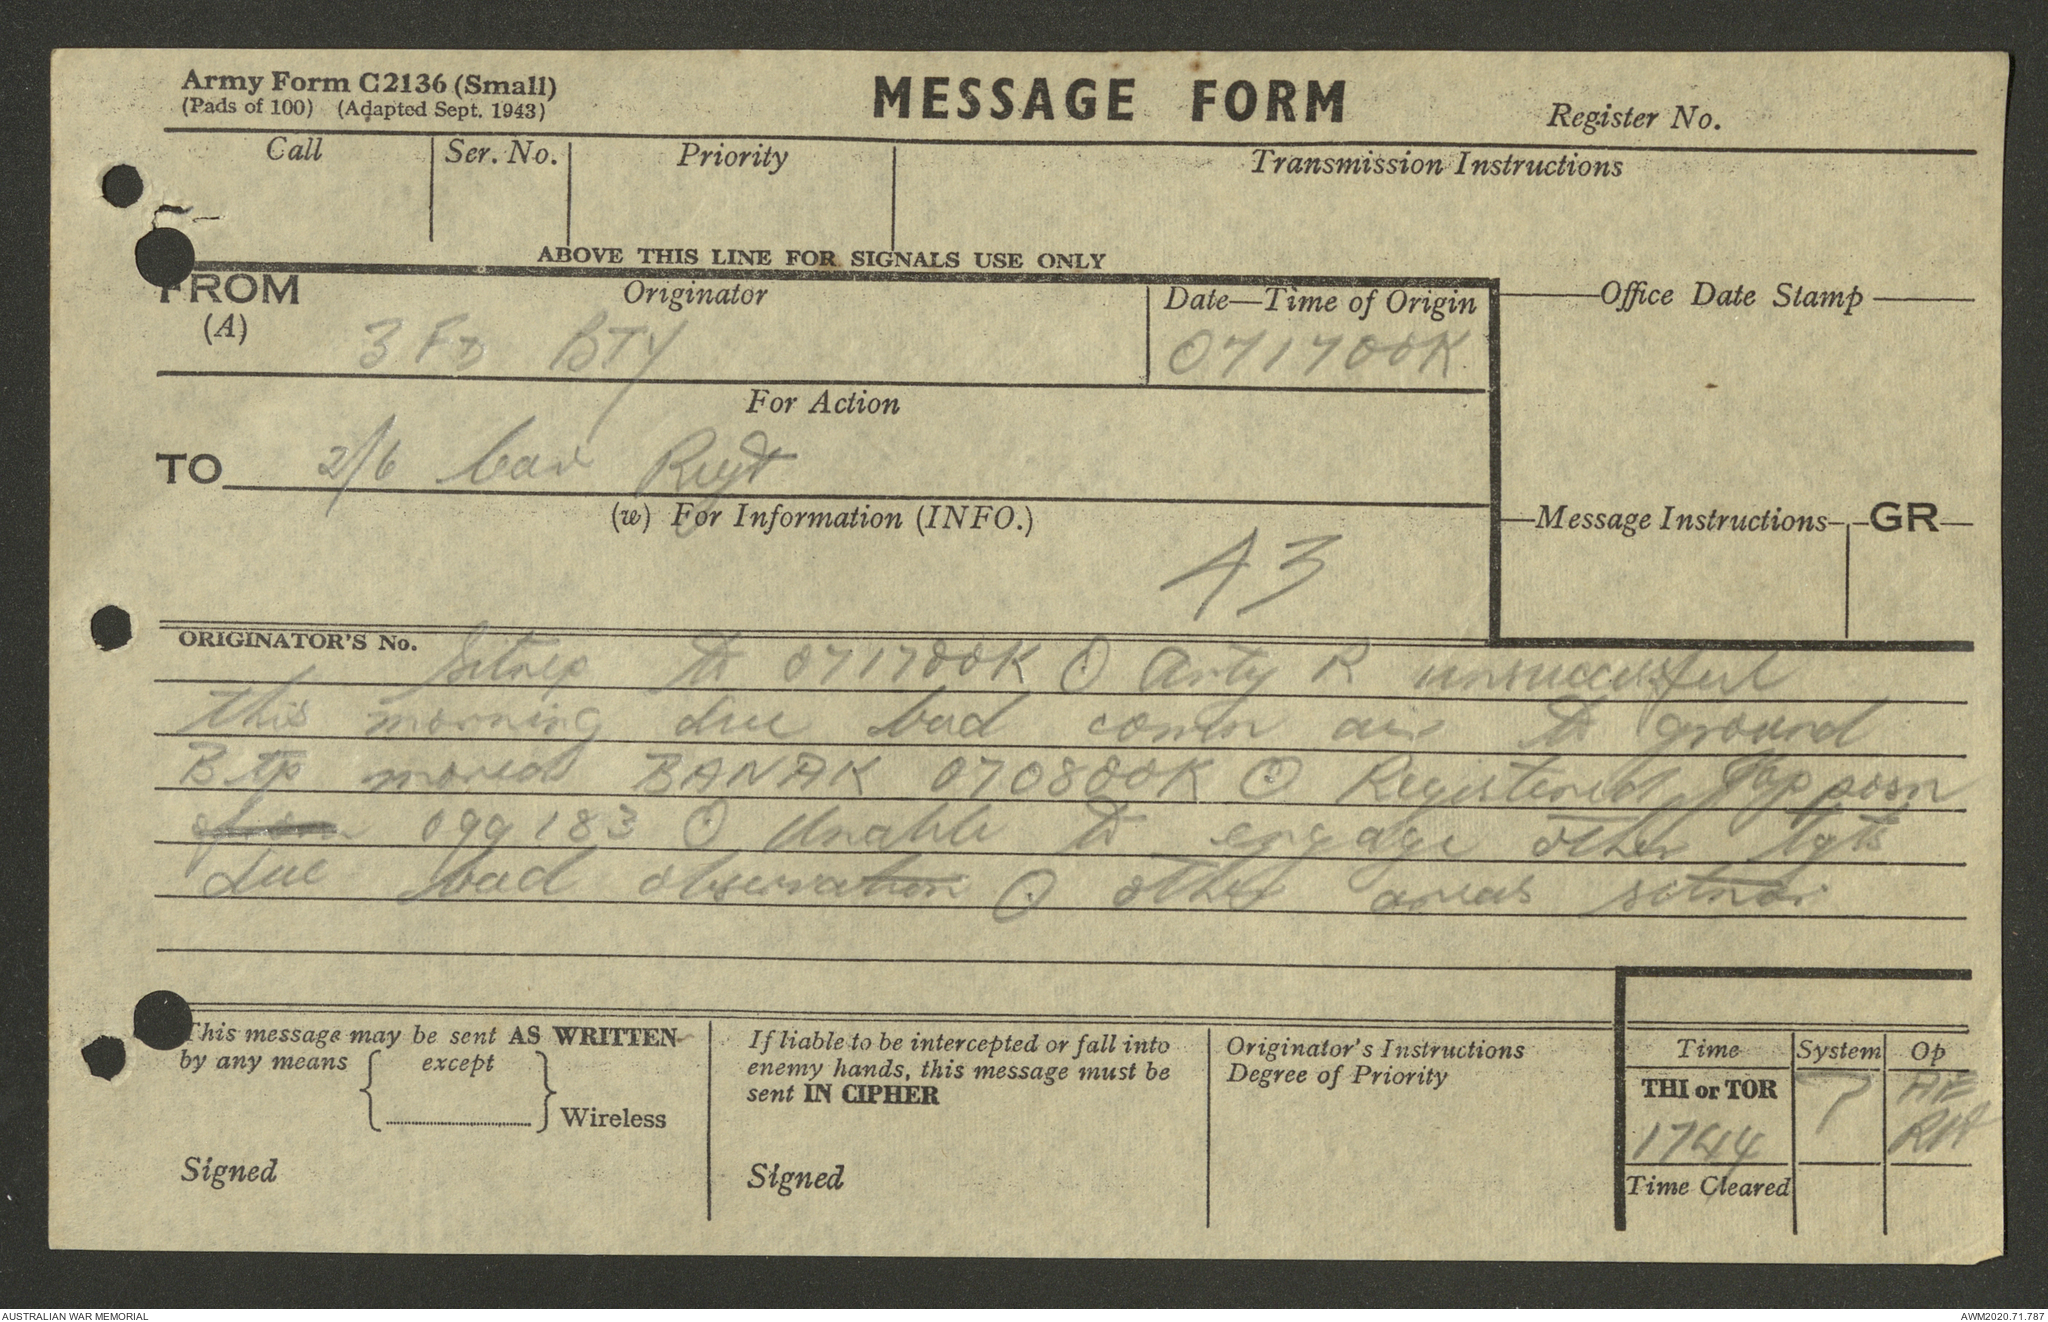 Army Form C2136 (Small)
(Pads of 100) (Adapted Sept. 1943)
MESSAGE FORM
Register No.
Call
Ser. No.
Priority
Transmission Instructions
ABOVE THIS LINE FOR SIGNALS USE ONLY
FROM
(A)
Originator
3 FD BTY
Date—Time of Origin
071700K
Office Date Stamp
For Action
TO
2/6 Cav Regt
(w) For Information (INFO.)
43
Message Instructions
GR
ORIGINATOR'S No.
Sitrep to 071700K O Arty R unsuccessful
this morning due bad comn air to ground
B tp moved BANAK 070800K O Registered Jap posn
099183 O Unable to engage other tgts
due bad observation O other areas sitnor
This message may be sent AS WRITTEN
by any means { except
} Wireless
Signed
If liable to be intercepted or fall into
enemy hands, this message must be
sent IN CIPHER
Signed
Originator's Instructions
Degree of Priority
Time
System
Op
THI or TOR
1744
Time Cleared
AUSTRALIAN WAR MEMORIAL
AWM2020.71.787